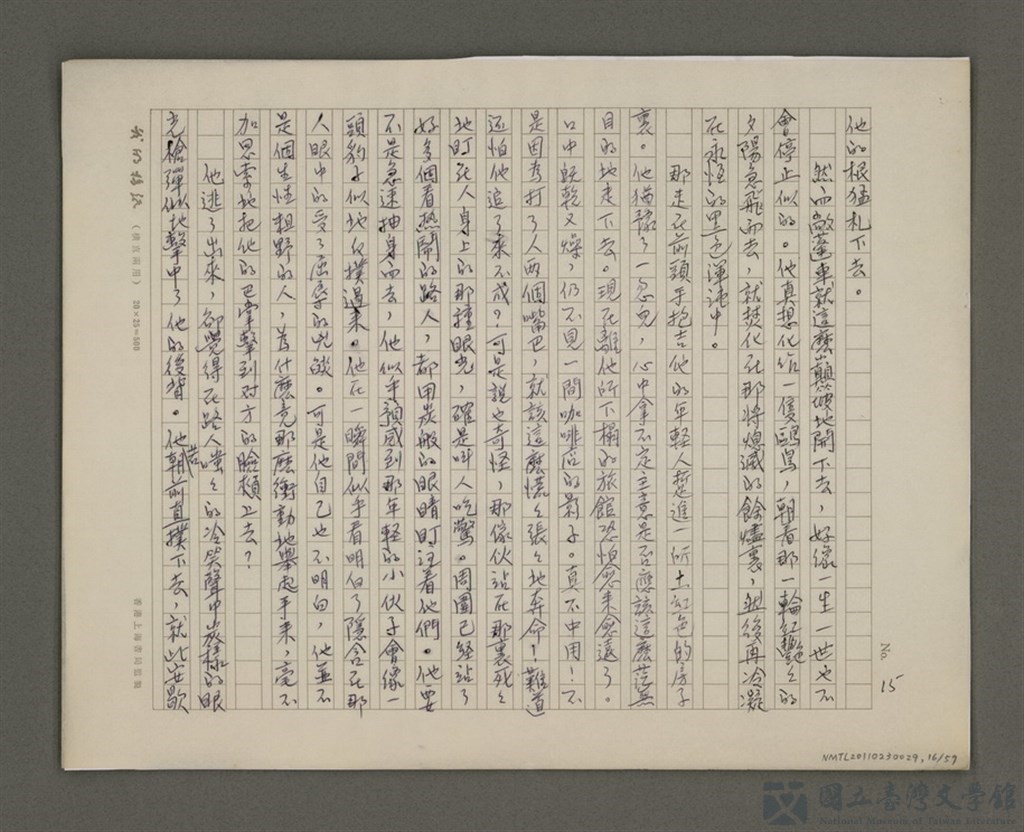 No. 15
他的根猛札下去。
然而敞蓬車就這麼顛簸地開下去，好像一生一世也不
會停止似的。他真想化作一隻鷗鳥，朝着那一輪紅艷々的
夕陽急飛而去，就焚化在那將熄滅的餘燼裏，然後再冷凝
在永恆的黑色渾沌中。
那走在前頭手抱吉他的年輕人踅進一所土紅色的房子
裏。他猶豫了一忽兒，心中拿不定主意是否應該這麼茫無
目的地走下去。現在離他所下榻的旅館恐怕愈來愈遠了。
口中既乾又燥，仍不見一間咖啡店的影子。真不中用！不
是因為打了人兩個嘴巴，就該這麼慌々張々地奔命！難道
還怕他追了來不成？可是說也奇怪，那傢伙站在那裏死々
地盯在人身上的那種眼光，確是叫人吃驚。周圍已經站了
好多個看熱鬧的路人，都用炭般的眼睛盯注着他們。他要
不是急速抽身而去，他似乎預感到那年輕的小伙子會像一
頭豹子似地反撲過來。他在一瞬間似乎看明白了隱含在那
人眼中的受了屈辱的兇燄。可是他自己也不明白，他並不
是個生性粗野的人，為什麼竟那麼衝動地舉起手來，毫不
加思索地把他的巴掌擊到对方的臉頰上去？
他逃了出來，卻覺得在路人嗤々的冷笑聲中炭樣的眼
光槍彈似地擊中了他的後背。他若朝前直撲下去，就此安歇
我的担紙
（橫直兩用） 20×25=500
香港上海書局監製
NMTL20110230029, 16/59
國立臺灣文學館
National Museum of Taiwan Literature